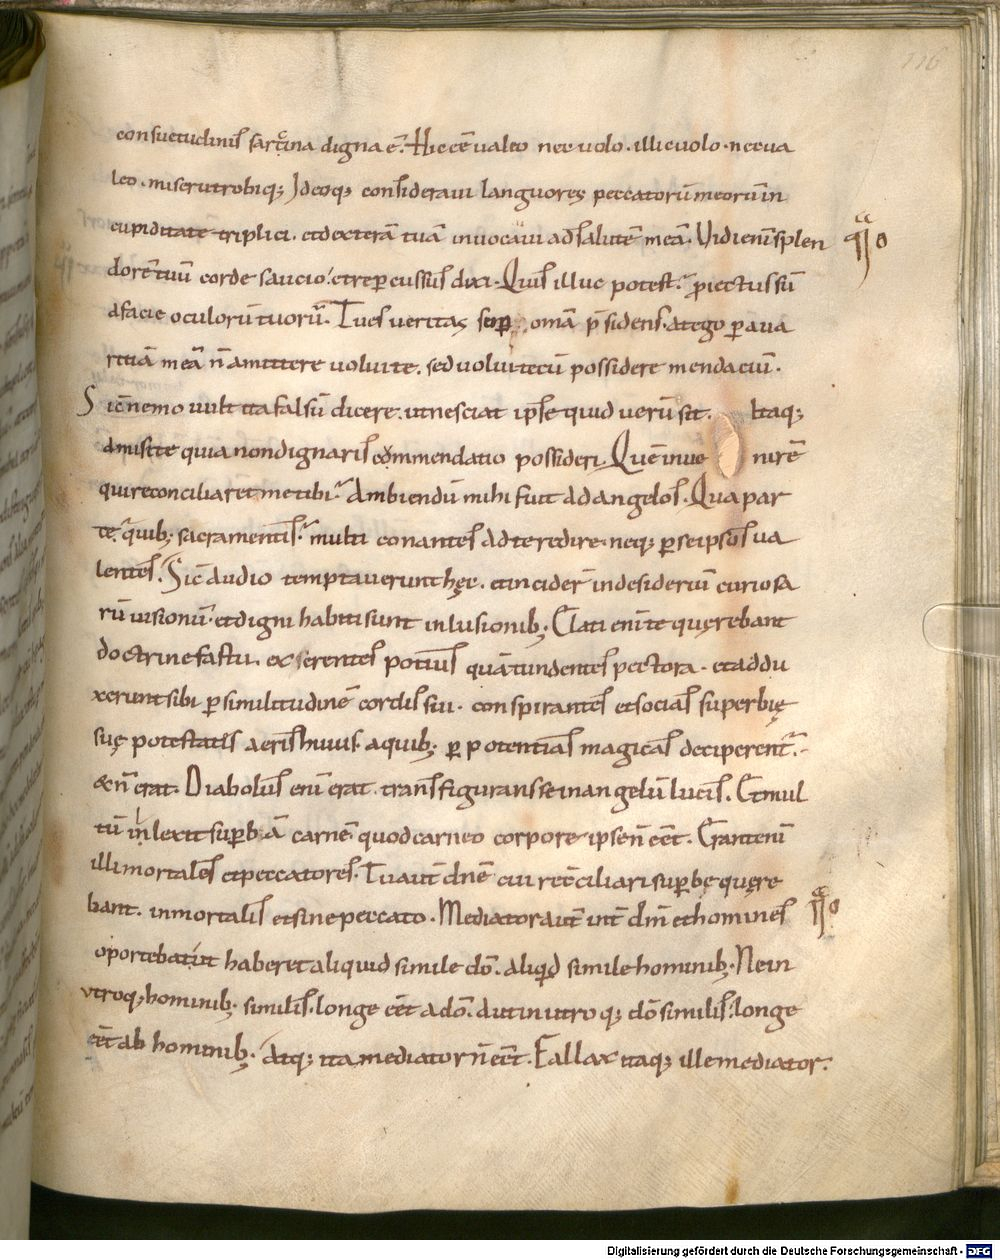 116
consuetudinis sarcina digna ē. Hic ēē valeo nec volo. illic volo. nec va
leo. miser utrobiq; Ideoq; consideravi languores peccatorū meorū in
cupiditate triplici. et dexterā tuā invocavi ad salutē meā. Vidi enī splen
dorē tuū corde saucio. et repercussus dixi. Quis illuc potest. proiectus sū
a facie oculorū tuorū. Tu es veritas sup omā p̄sidens. at ego p ava
ritiā meā n̄ amittere volui te. sed volui tecū possidere mendaciū.
Sic nemo vult ita falsū dicere. ut nesciat ipse quid verū sit. Itaq;
amisi te quia non dignaris cōmmendatio possideri. Quē inve nirē
qui reconciliaret me tibi. Ambiendū mihi fuit ad angelos. Qua par
te. quib; sacramentis. multi conantes ad te redire. neq; p se ipsos va
lentes. Sic audio temptaverunt hęc. et incider̄ in desideriū curiosa
rū visionū. et digni habiti sunt inlusionib; Elati enī te quęrebant
doctrine fastu. exserentes potius quā tundentes pectora. et addu
xerunt sibi p similitudinē cordis sui. conspirantes et socias superbię
suę potestates aeris huius. a quib; p potentias magicas deciperent̄.
& n̄ erat. Diabolus enī erat. transfigurans se in angelū lucis. Et mul
tū inlexit superbā carnē. quod carneo corpore ipse n̄ eēt. Erant enī
illi mortales et peccatores. Tu aut̄ dn̄e cui recc̄iliari superbę quęre
bant. inmortalis et sine peccato. Mediator aut̄ int̄ dm̄ et homines
oportebat ut haberet aliquid simile dō. aliqid simile hominib; Ne in
utroq; hominib; similis. longe eēt a dō. aut in utroq; dō similis. longe
eēt ab hominib; atq; ita mediator n̄ eēt. Fallax itaq; ille mediator.
Digitalisierung gefördert durch die Deutsche Forschungsgemeinschaft - DFG